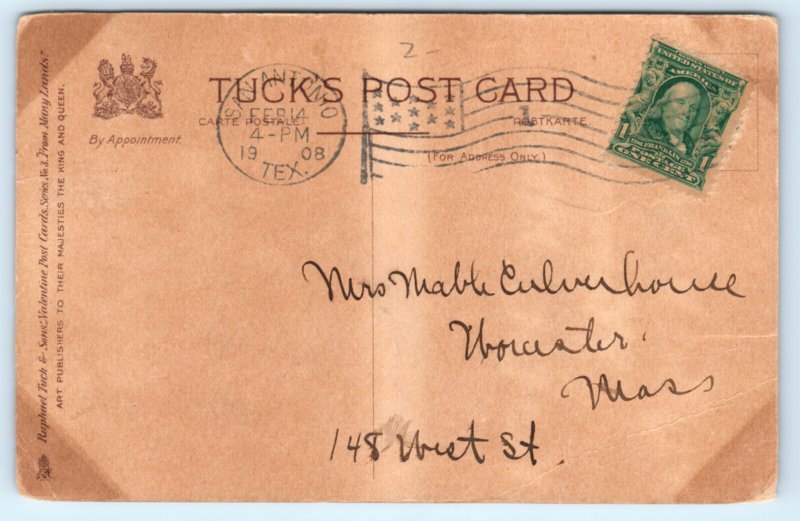 2-
TUCK'S POST CARD
CARTE POSTALE. POSTKARTE
(FOR ADDRESS ONLY.)
By Appointment.
Raphael Tuck & Sons' Valentine Post Cards, Series No. 3, "From Many Lands."
ART PUBLISHERS TO THEIR MAJESTIES THE KING AND QUEEN.
SAN ANTONIO
FEB 14
4-PM
1908
TEX.
1
UNITED STATES OF
AMERICA
FRANKLIN
1 1
ONE CENT
Mrs Mable Culverhouse
Worcester
Mass
148 West St.